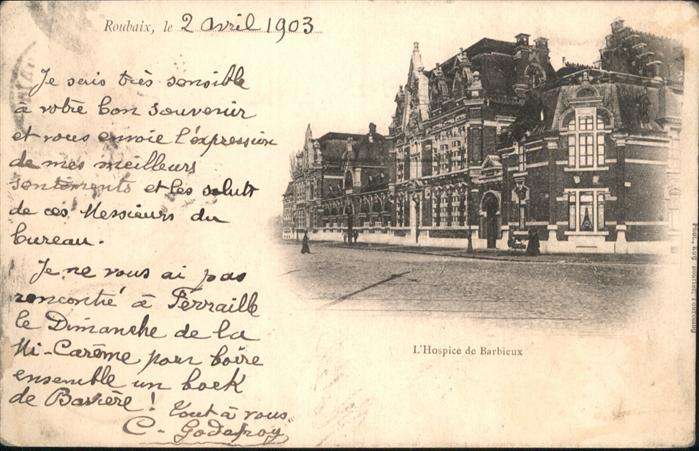 Roubaix, le 2 avril 1903
Je suis très sensible
à votre bon souvenir
et vous envoie l'expression
de mes meilleurs
sentiments et les saluts
de ces Messieurs du
bureau.
Je ne vous ai pas
rencontré à Ferraille
le Dimanche de la
Mi-Carême pour boire
ensemble un bock
de Bavière ! Tout à vous
C. Godefroy
L'Hospice de Barbieux